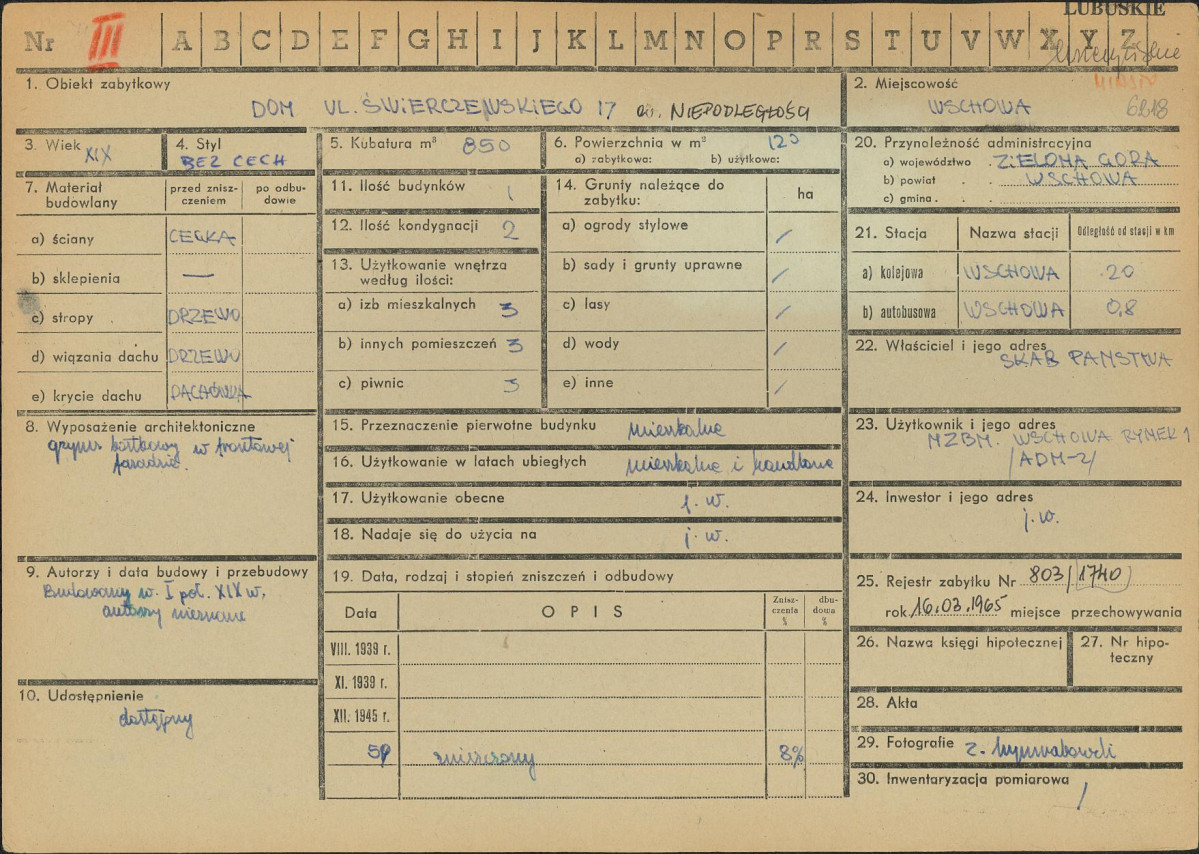 LUBUSKIE
Nr III A B C D E F G H I J K L M N O P R S T U V W X Y Z
1. Obiekt zabytkowy
DOM UL. ŚWIERCZEWSKIEGO 17 NIEPODLEGŁOŚCI
2. Miejscowość MIASTO
WSCHOWA 6218
3. Wiek XIX
4. Styl
BEZ CECH
5. Kubatura m³ 850
6. Powierzchnia w m² 120
a) zabytkowa: b) użytkowa:
7. Materiał budowlany
przed zniszczeniem
po odbudowie
a) ściany CEGŁA
b) sklepienia —
c) stropy DRZEWO
d) wiązania dachu DRZEWO
e) krycie dachu DACHÓWKA
8. Wyposażenie architektoniczne
gzyms kostkowy w frontowej
fasadzie.
9. Autorzy i data budowy i przebudowy
Budowany w I poł. XIX w,
autorzy nieznane
10. Udostępnienie
dostępny
11. Ilość budynków 1
12. Ilość kondygnacji 2
13. Użytkowanie wnętrza
według ilości:
a) izb mieszkalnych 3
b) innych pomieszczeń 3
c) piwnic 3
14. Grunty należące do
zabytku:
ha
a) ogrody stylowe /
b) sady i grunty uprawne /
c) lasy /
d) wody /
e) inne /
15. Przeznaczenie pierwotne budynku mieszkalne
16. Użytkowanie w latach ubiegłych mieszkalne i handlowe
17. Użytkowanie obecne j. w.
18. Nadaje się do użycia na j. w.
19. Data, rodzaj i stopień zniszczeń i odbudowy
Data OPIS Zniszczenia % dbudowa %
VIII. 1939 r.
XI. 1939 r.
XII. 1945 r.
59 zniszczony 8%
20. Przynależność administracyjna
a) województwo ZIELONA GÓRA
b) powiat WSCHOWA
c) gmina
21. Stacja Nazwa stacji Odległość od stacji w km
a) kolejowa WSCHOWA 20
b) autobusowa WSCHOWA 0,8
22. Właściciel i jego adres
SKAB PAŃSTWA
23. Użytkownik i jego adres
MZBM. WSCHOWA RYNEK 1
/ADM-2/
24. Inwestor i jego adres
j. w.
25. Rejestr zabytku Nr 803/(1740)
rok 16.03.1965 miejsce przechowywania
26. Nazwa księgi hipotecznej
27. Nr hipoteczny
28. Akta
29. Fotografie
30. Inwentaryzacja pomiarowa /